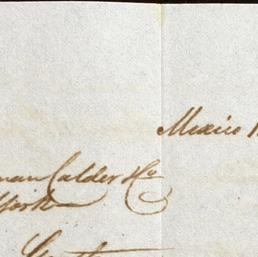 Mexico 1
man Calder & Co
York